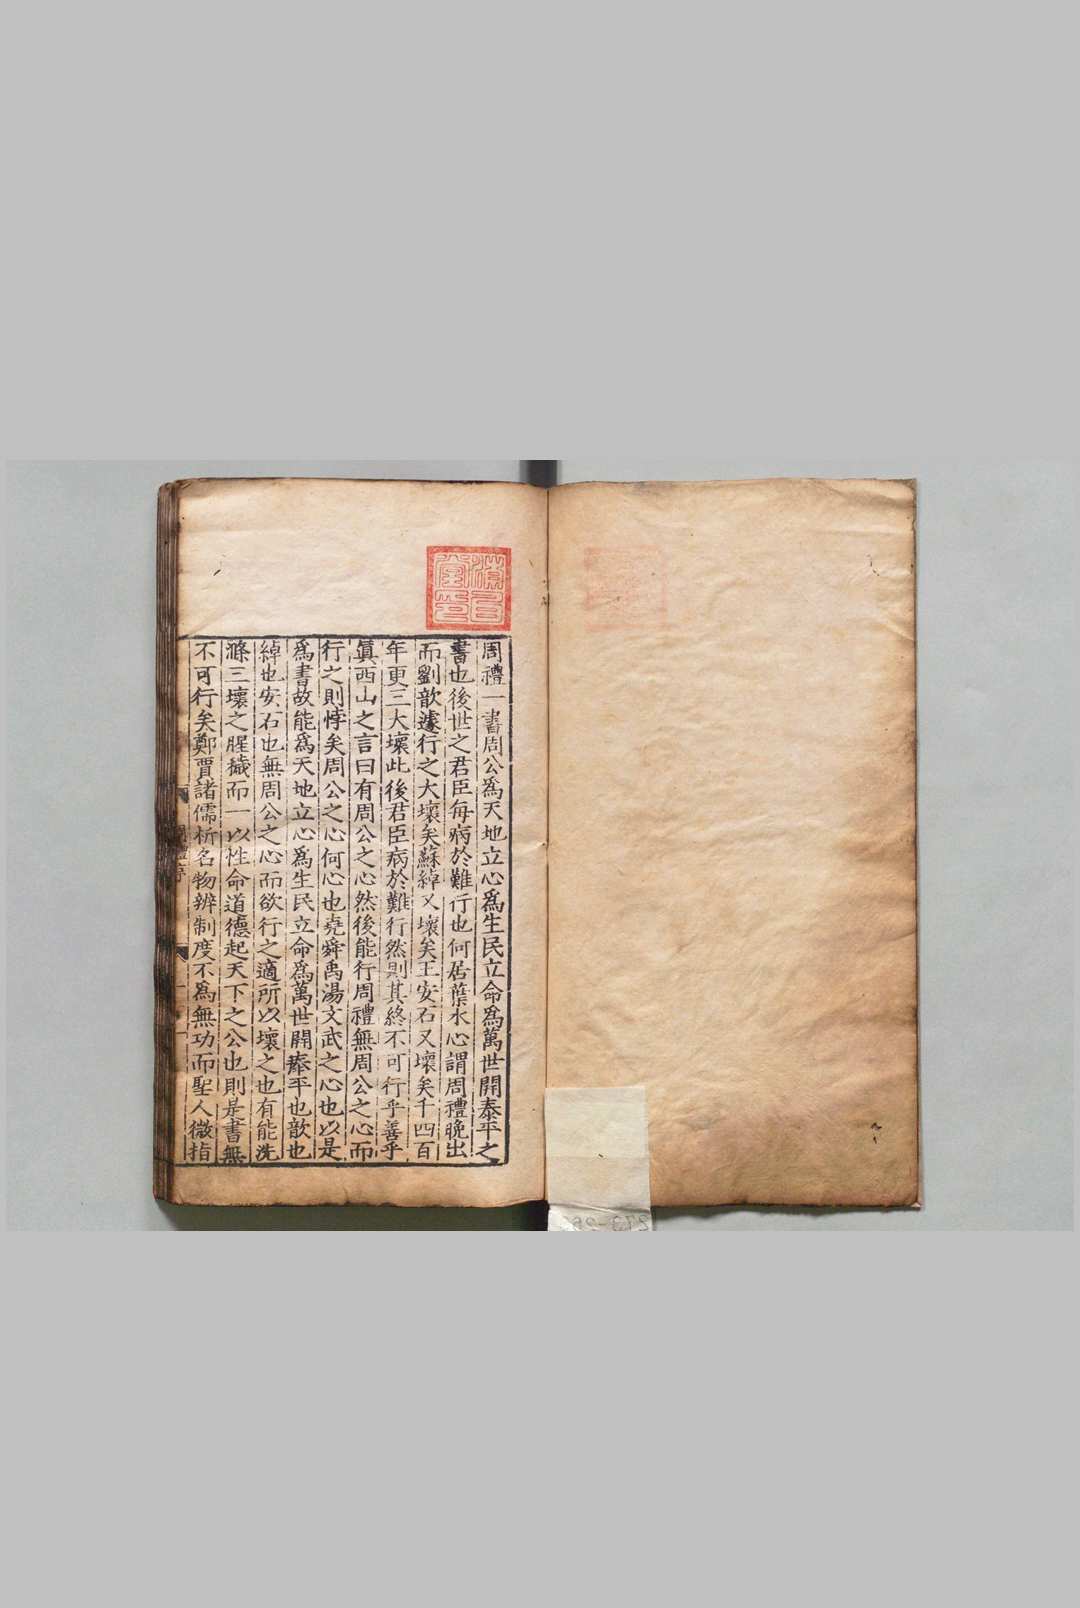 周禮一書周公爲天地立心爲生民立命爲萬世開泰平之
書也後世之君臣每病於難行也何居葉水心謂周禮晚出
而劉歆遽行之大壞矣蘇綽又壞矣王安石又壞矣千四百
年更三大壞此後君臣病於難行然則其終不可行乎善乎
眞西山之言曰有周公之心然後能行周禮無周公之心而
行之則悖矣周公之心何心也堯舜禹湯文武之心也以是
爲書故能爲天地立心爲生民立命爲萬世開泰平也歆也
綽也安石也無周公之心而欲行之適所以壞之也有能洗
滌三壞之腥穢而一以性命道德起天下之公也則是書無
不可行矣鄭賈諸儒析名物辨制度不爲無功而聖人微指
273-26